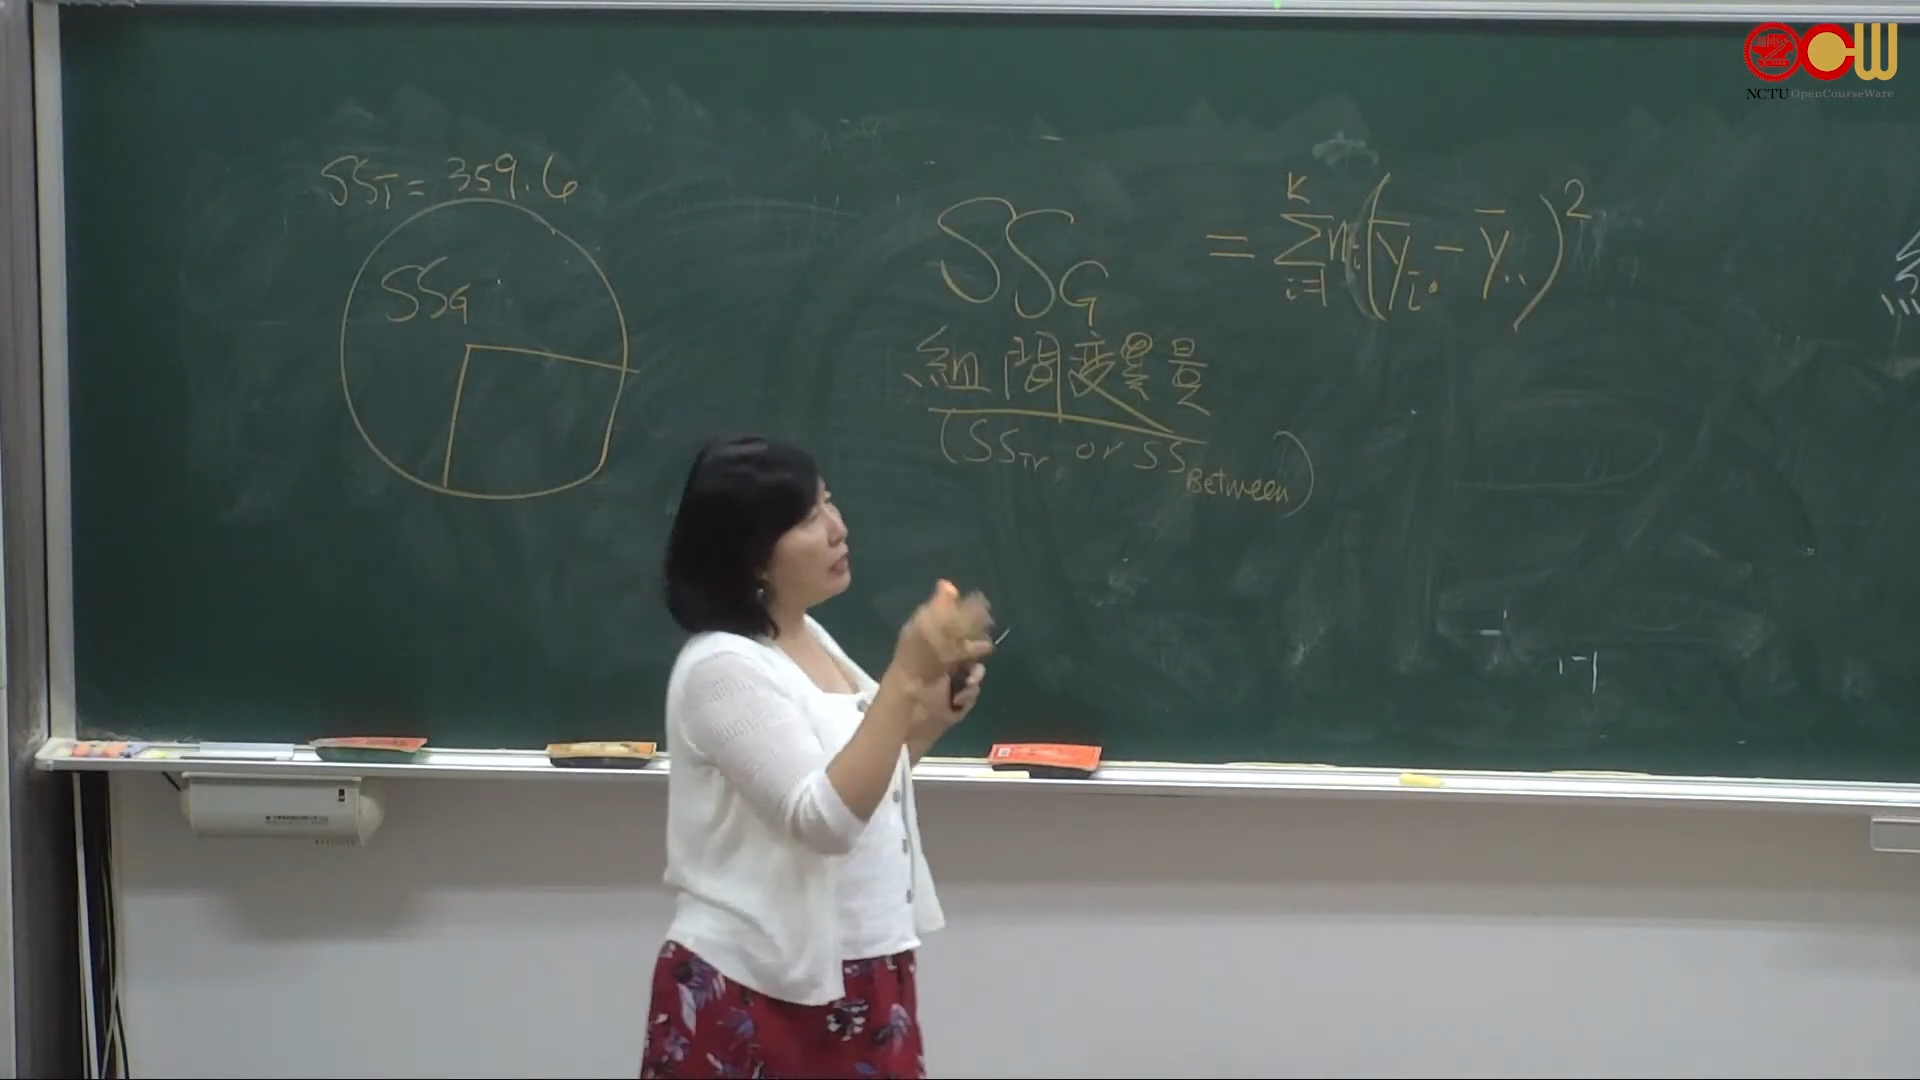 NCTU OpenCourseWare
SS_T = 359.6
SS_G
SS_G = \sum_{i=1}^{K} n_i (\bar{y}_{i.} - \bar{y}_{..})^2
組間變異量
(SS_Tr, or SS_Between)